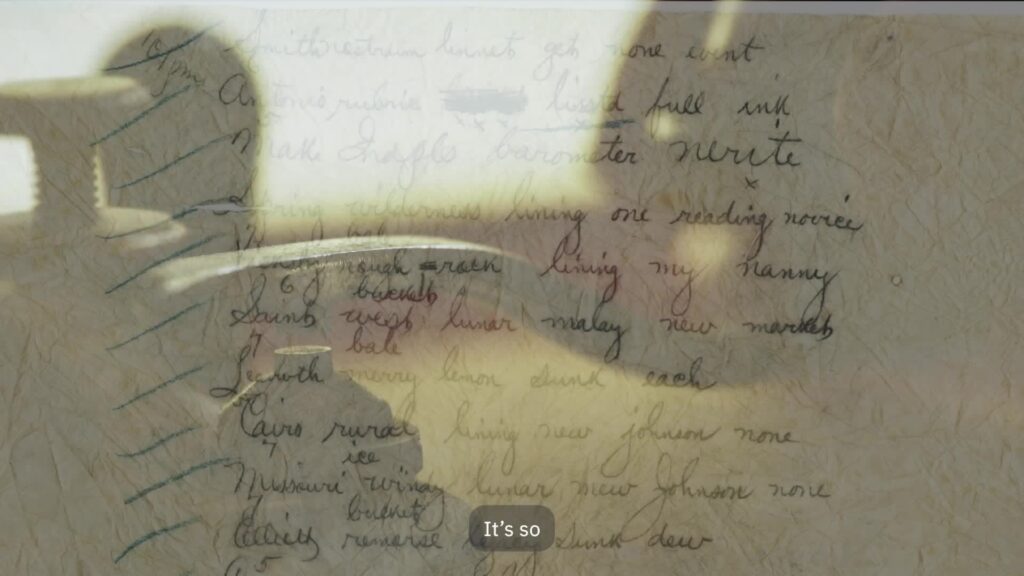 Smith nostrum linnet get none event
Antonio rubric lin'd full ink
Make Indpls barometer nerite
x
Spring wilderness lining one reading novice
Vandy rough rack lining my nanny
6 bucket
Saints west lunar malay new markets
7 bale
Leawoth merry lemon sunk each
Cairo rural lining new johnson none
7 ice
Missouri windy lunar mew Johnson none
bucket
Elliott remorse sunk dew
5
It's so